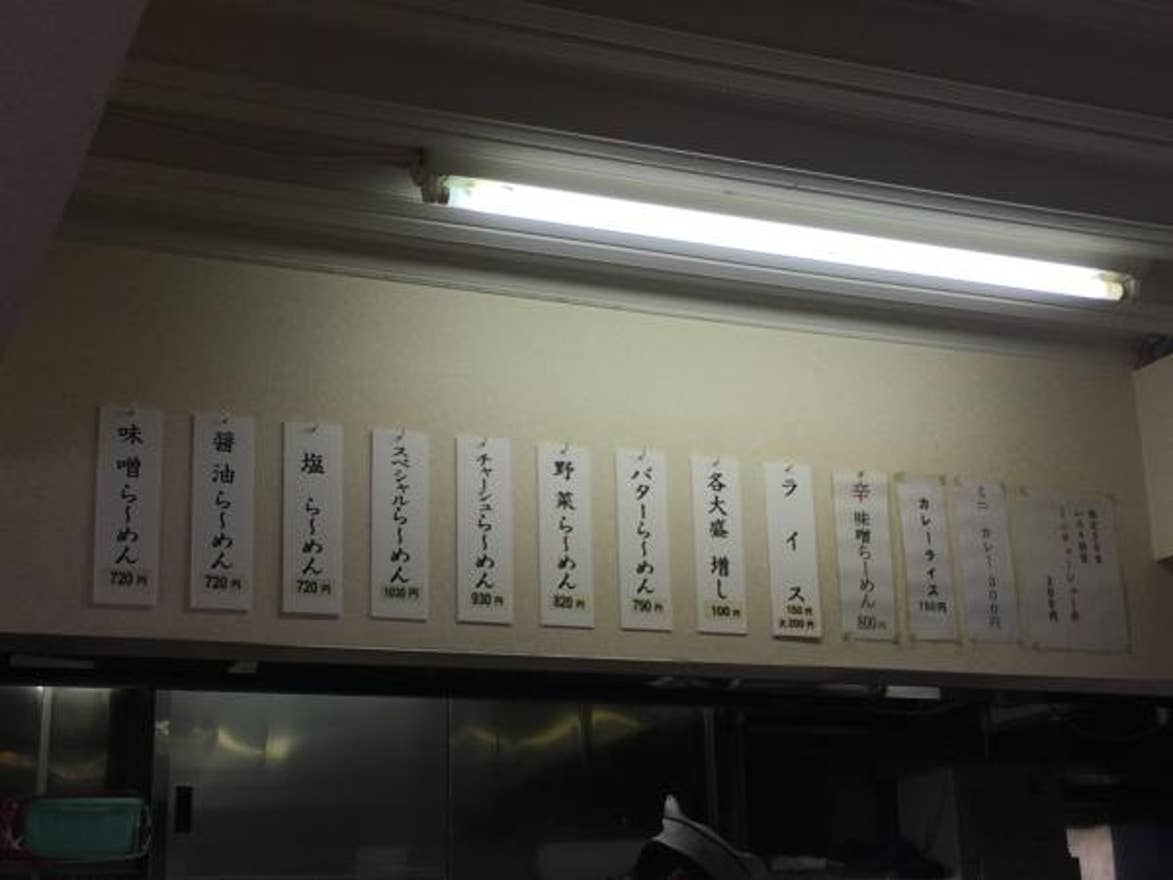 味噌ら～めん
720円
醤油ら～めん
720円
塩 ら～めん
720円
スペシャルら～めん
1030円
チャーシュら～めん
930円
野菜ら～めん
820円
バターら～めん
790円
各大盛 増し
100円
ライス
150円
大200円
辛味噌ら～めん
800円
カレーライス
ミニ カレー300円